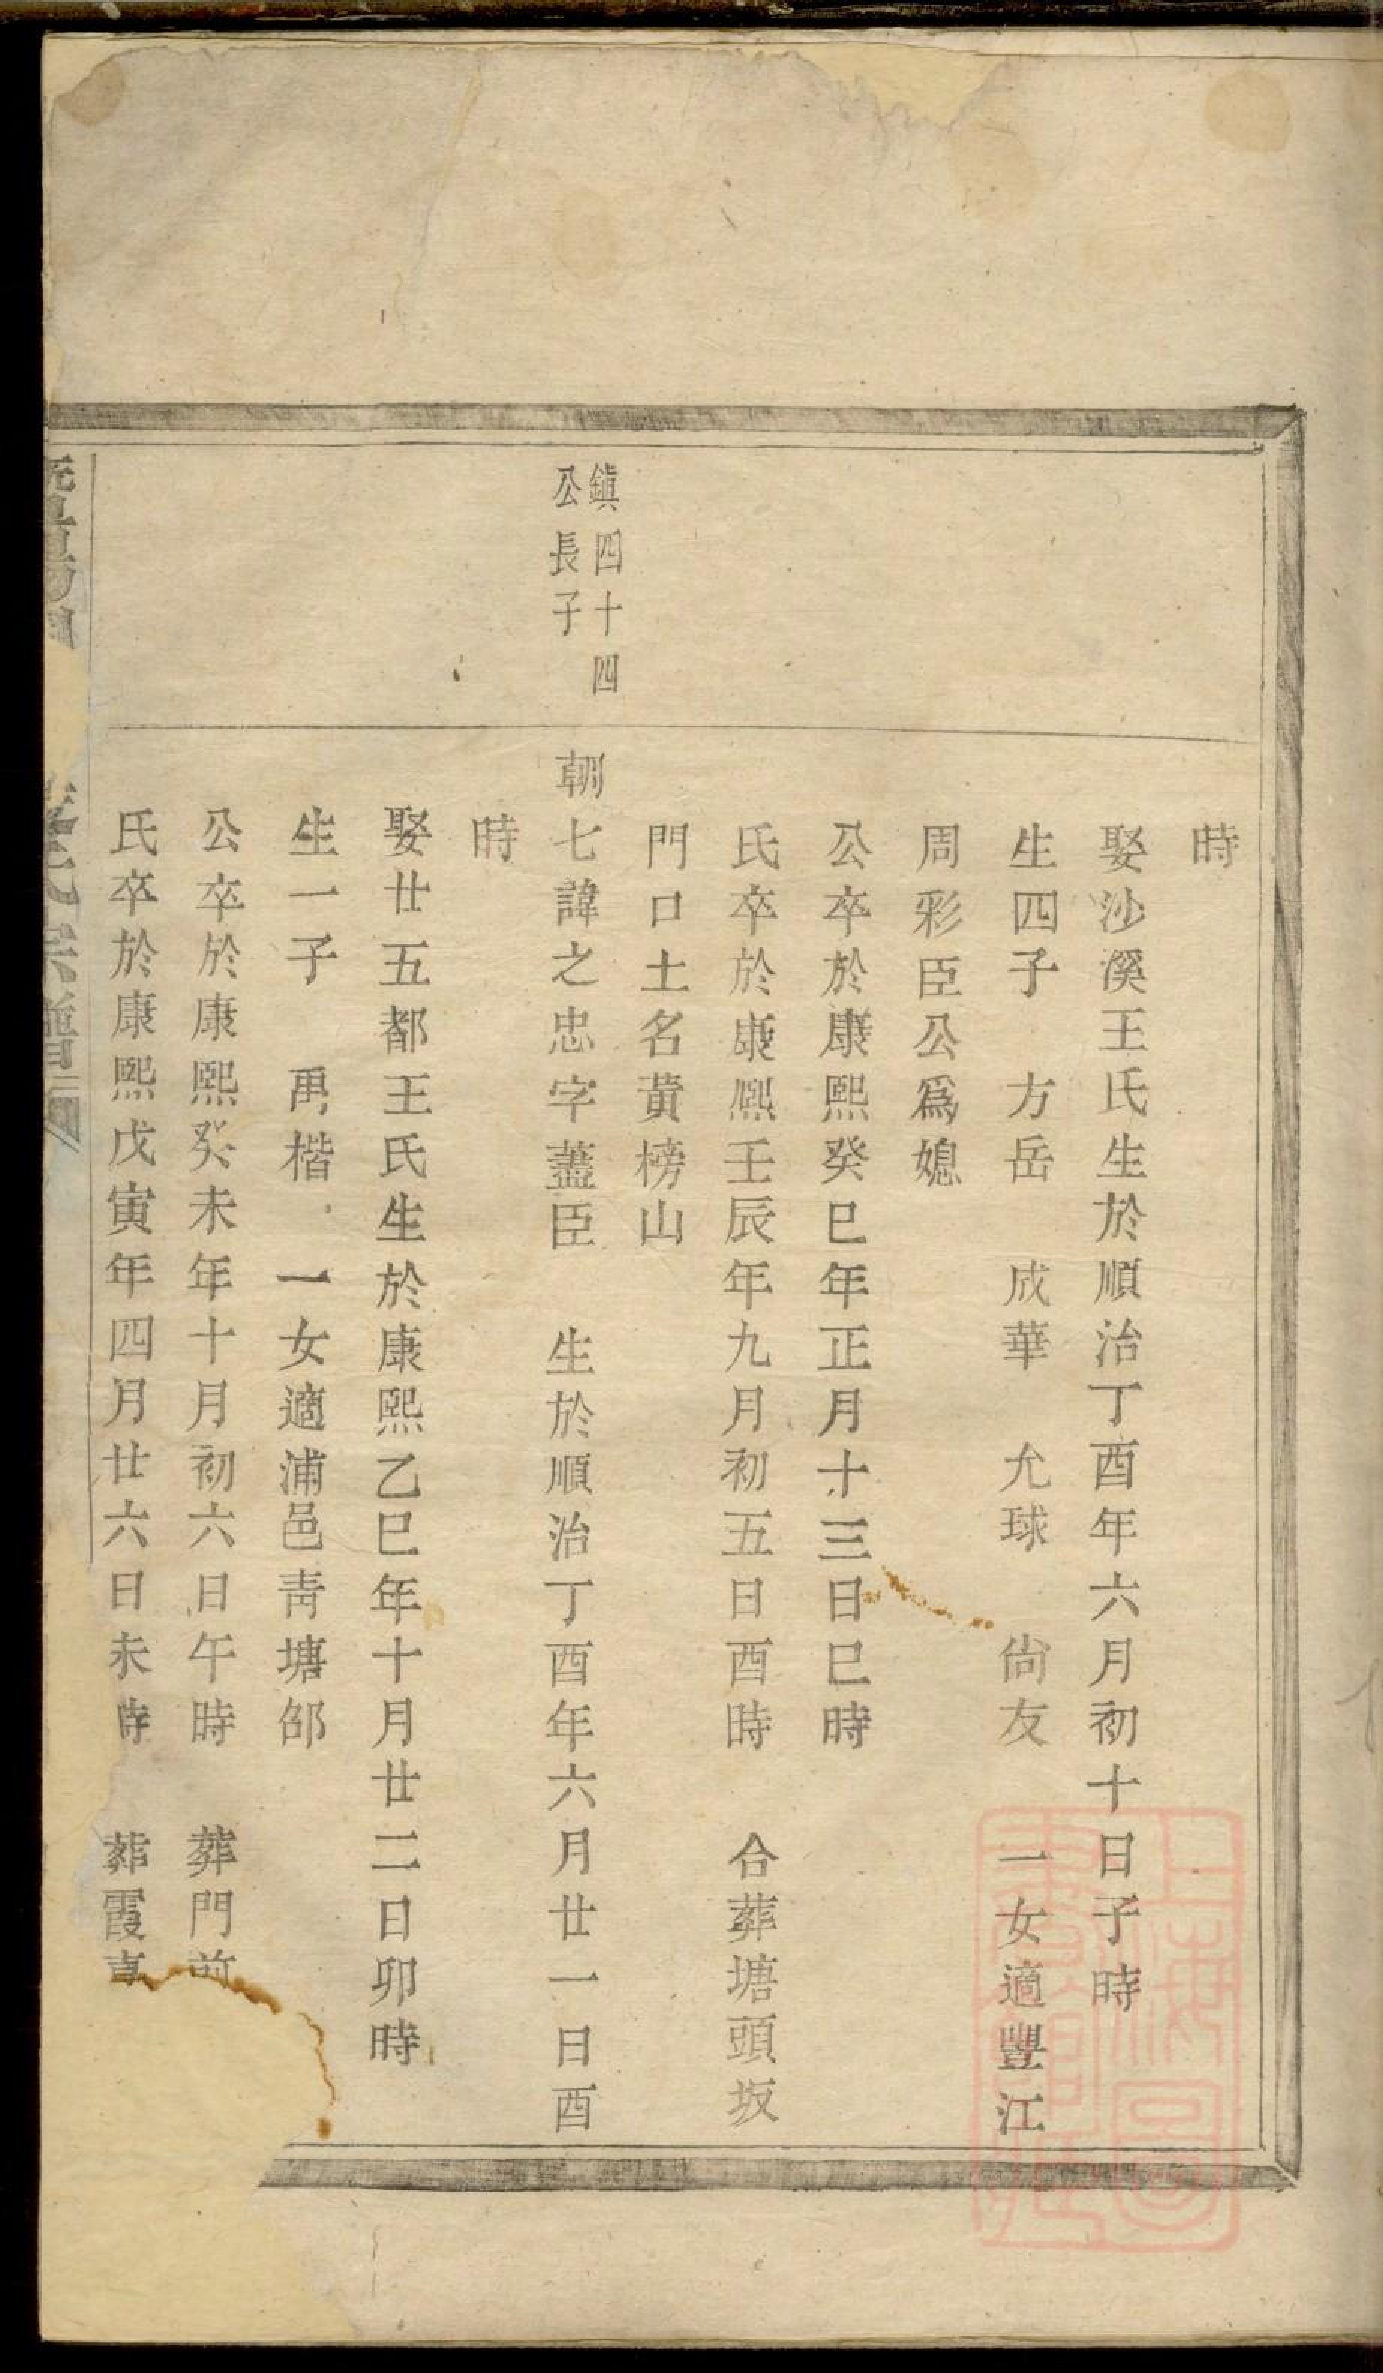 時
娶沙溪王氏生於順治丁酉年六月初十日子時
生四子　方岳　成華　允球　尙友　一女適豐江
周彩臣公爲媳
公卒於康熙癸巳年正月十三日巳時
氏卒於康熙壬辰年九月初五日酉時　合葬塘頭坂
門口土名黃榜山
鎮四十四
公長子
朝七諱之忠字藎臣　生於順治丁酉年六月廿一日酉
時
娶廿五都王氏生於康熙乙巳年十月廿二日卯時
生一子　禹楷　一女適浦邑青塘邰
公卒於康熙癸未年十月初六日午時　葬門前
氏卒於康熙戊寅年四月廿六日未時　葬霞
氏宗譜
上海圖書館藏